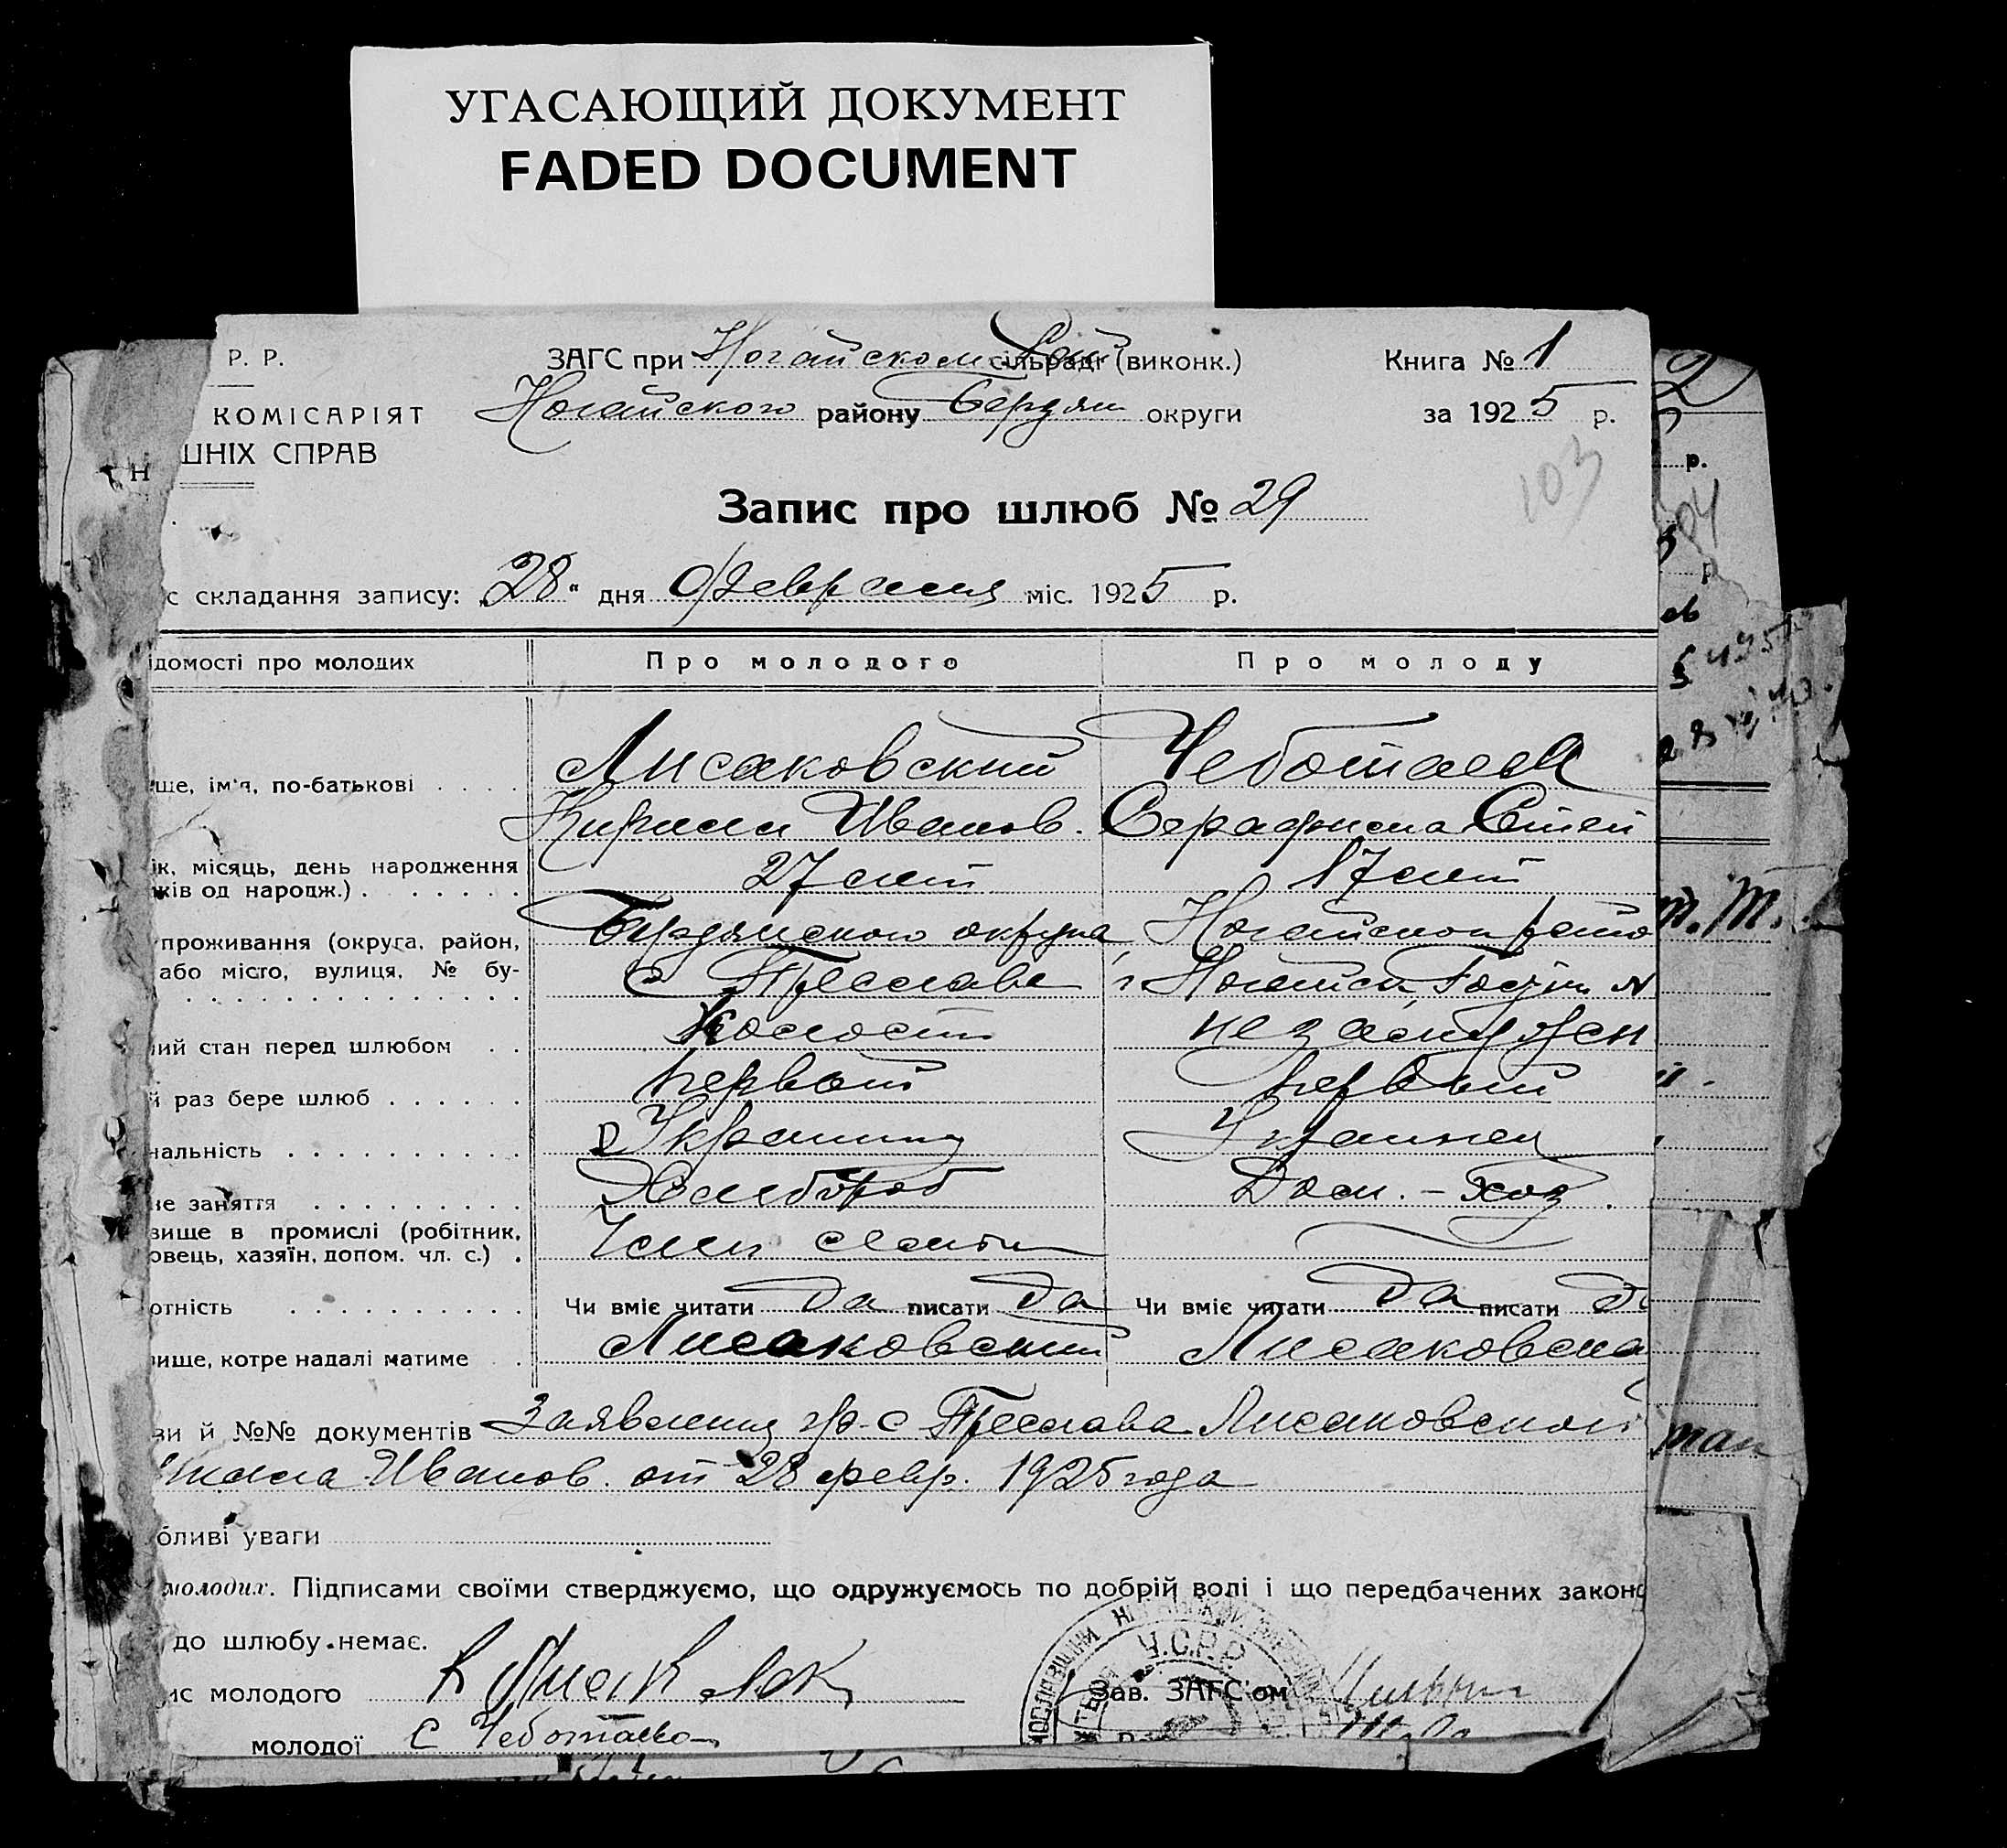 УГАСАЮЩИЙ ДОКУМЕНТ
FADED DOCUMENT
Р. Р.
ЗАГС при Ногайском сільраді (виконк.)
Книга № 1
КОМІСАРІЯТ
Ногайского району Бердян округи
за 1925 р.
ШНІХ СПРАВ
103
Запис про шлюб № 29
с складання запису: "28" дня февраля міс. 1925 р.
ідомості про молодих
Про молодого
Про молоду
ще, ім'я, по-батькові
Лисаковский
Кирилл Иванов.
Чеботаева
Серафима
ік, місяць, день народження
ків од народж.)
27 лет
17 лет
проживання (округа, район,
або місто, вулиця, № бу-
Бердянского округа
с Преслава
Ногайск
ий стан перед шлюбом
Холост
незамужен
й раз бере шлюб
первый
первый
нальність
Украинец
Украинец
не заняття
Хлебороб
Дом. - хоз.
вище в промислі (робітник,
овець, хазяїн, допом. чл. с.)
Член семьи
отність
Чи вміє читати да писати да
Чи вміє читати да писати да
вище, котре надалі матиме
Лисаковский
Лисаковска
ви й №№ документів Заявления гр. с Преслава Лисаковской
Иванов. от 28 февр. 1925 года
бливі уваги
молодих. Підписами своїми стверджуємо, що одружуємось по добрій волі і що передбачених законо
до шлюбу немає.
ис молодого
Зав. ЗАГС'ом
молодої С Чеботаева
У.С.Р.Р.